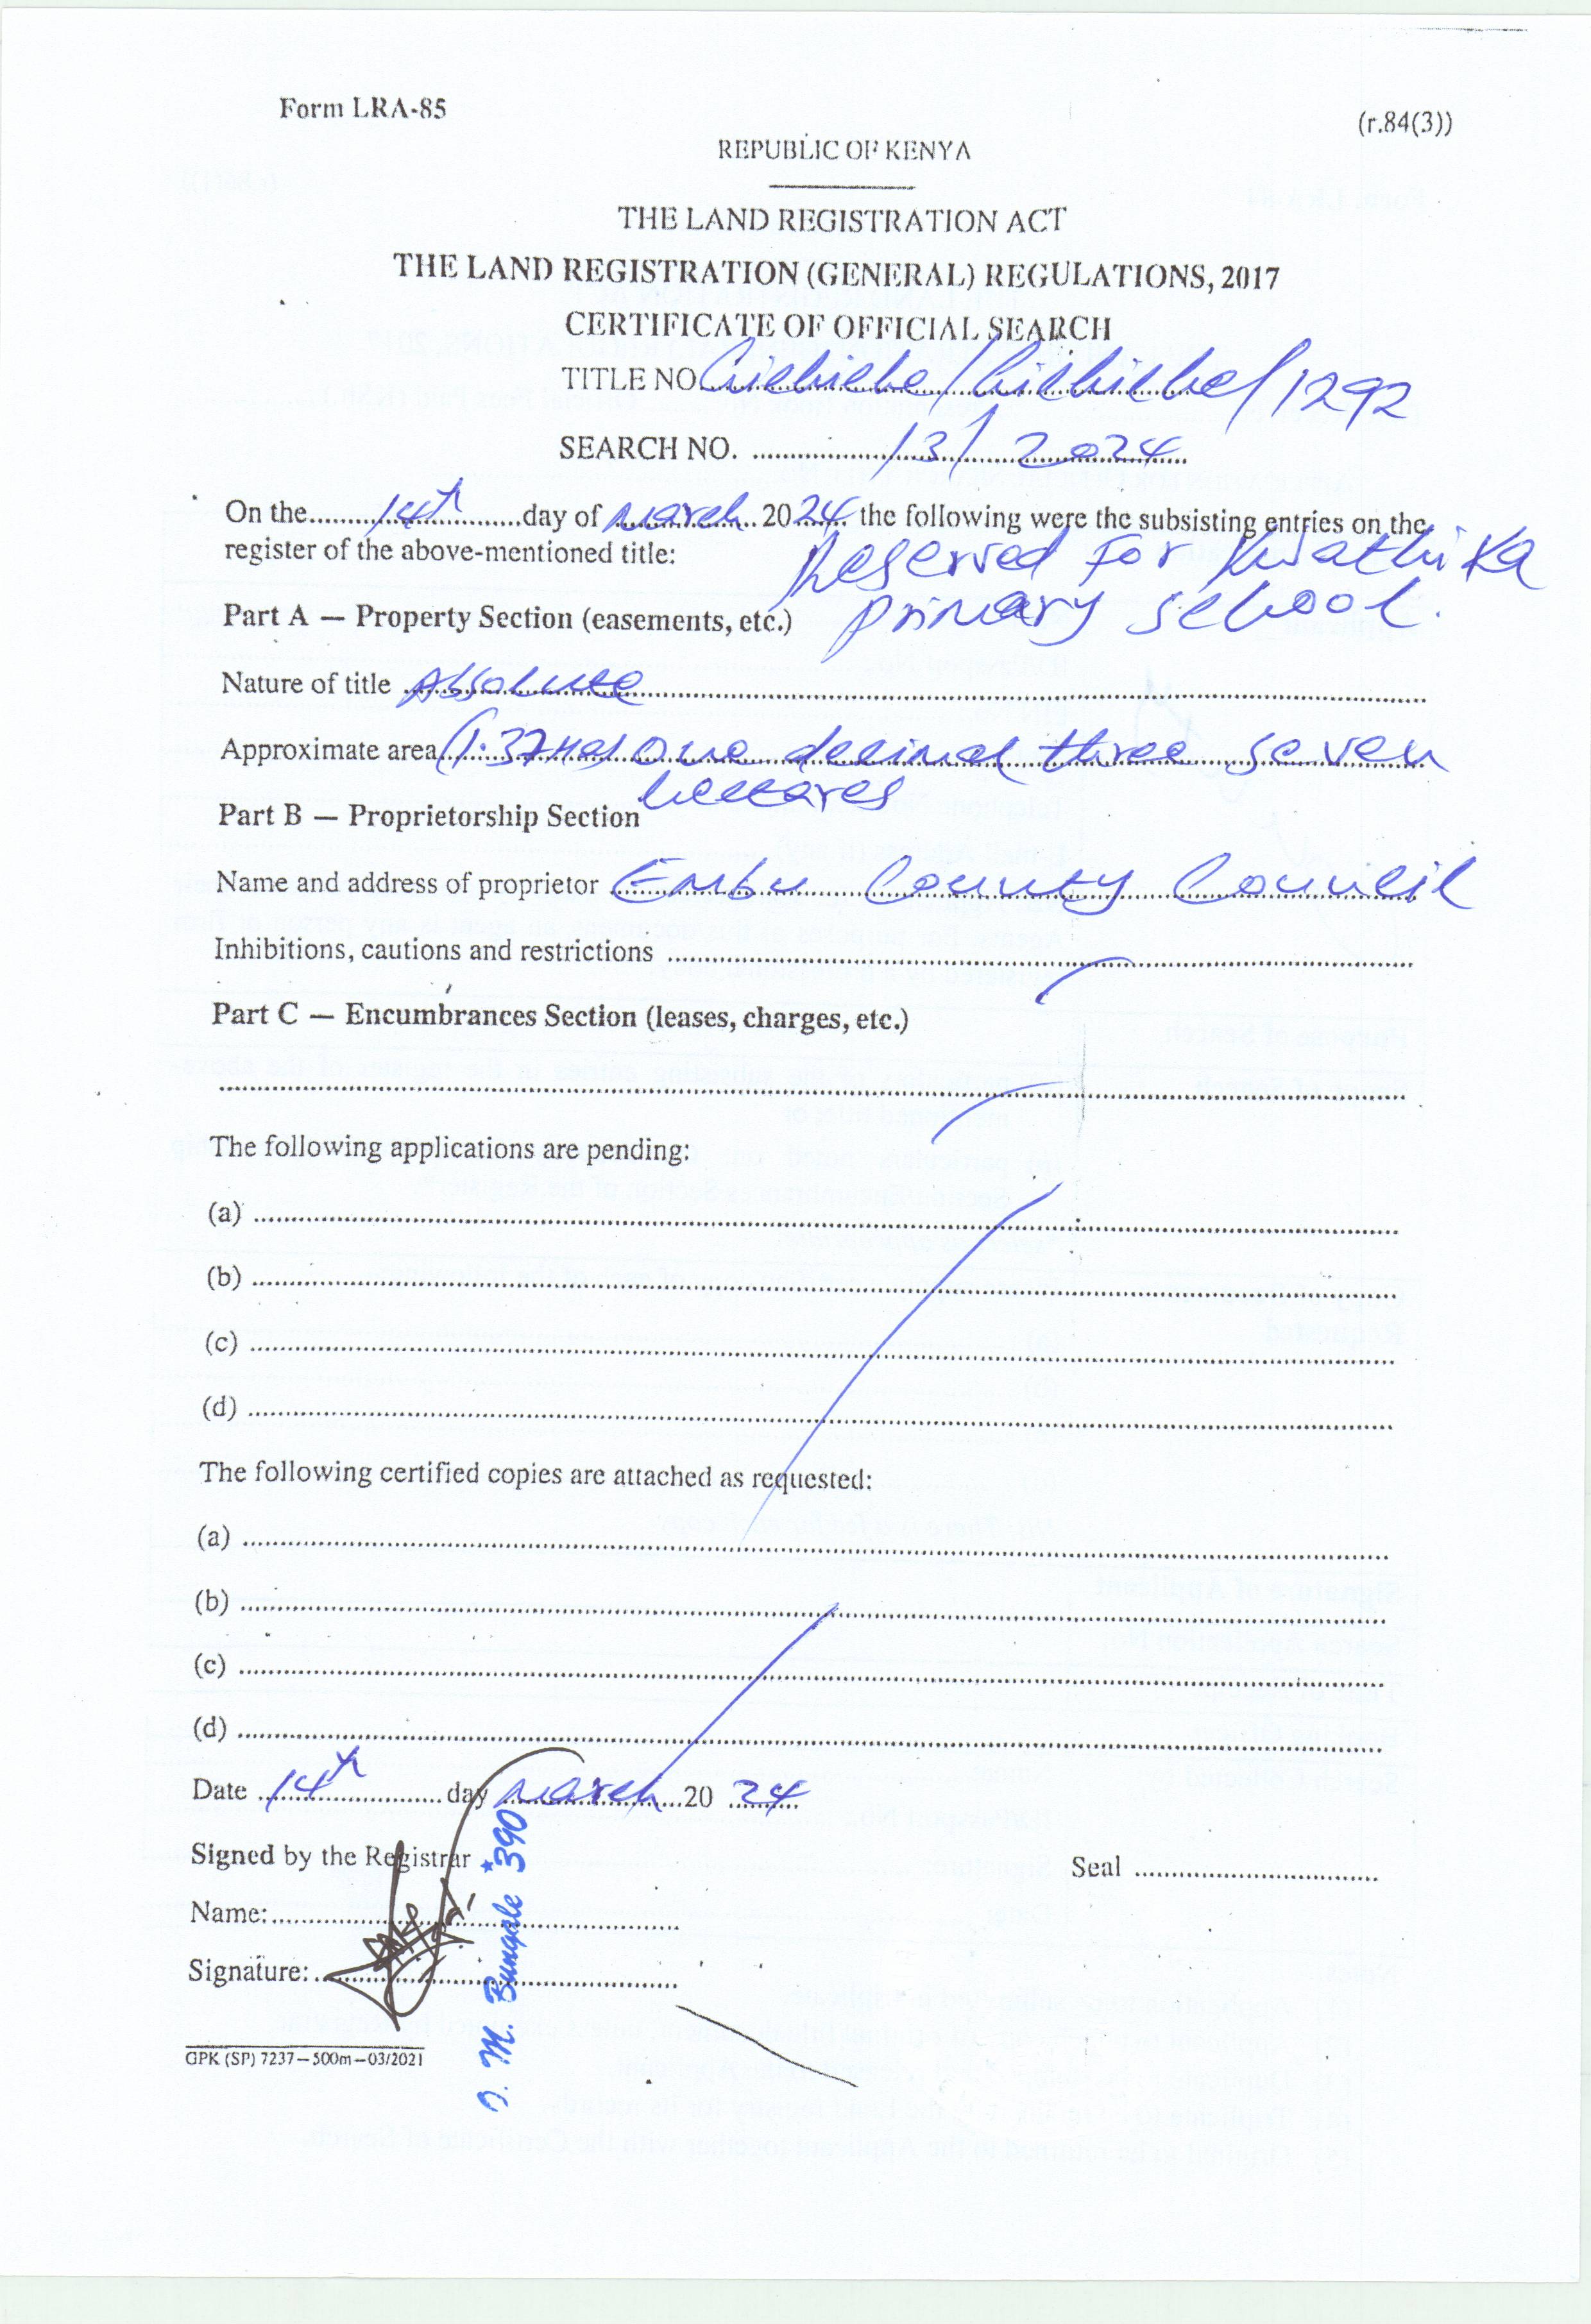 Form LRA-85
(r.84(3))
REPUBLIC OF KENYA
THE LAND REGISTRATION ACT
THE LAND REGISTRATION (GENERAL) REGULATIONS, 2017
CERTIFICATE OF OFFICIAL SEARCH
TITLE NO. /1292
SEARCH NO. 13/2024
On the 14th day of March 2024 the following were the subsisting entries on the
register of the above-mentioned title:
Reserved For Kwathika
Part A — Property Section (easements, etc.) primary school.
Nature of title Absolute
Approximate area (1.37Ha) One decimal three seven
hectares
Part B — Proprietorship Section
Name and address of proprietor Embu County Council
Inhibitions, cautions and restrictions
Part C — Encumbrances Section (leases, charges, etc.)
The following applications are pending:
(a)
(b)
(c)
(d)
The following certified copies are attached as requested:
(a)
(b)
(c)
(d)
Date 14th day March 2024
Signed by the Registrar
Seal
Name:
Signature:
J. M. Bungale *390
GPK (SP) 7237—500m—03/2021